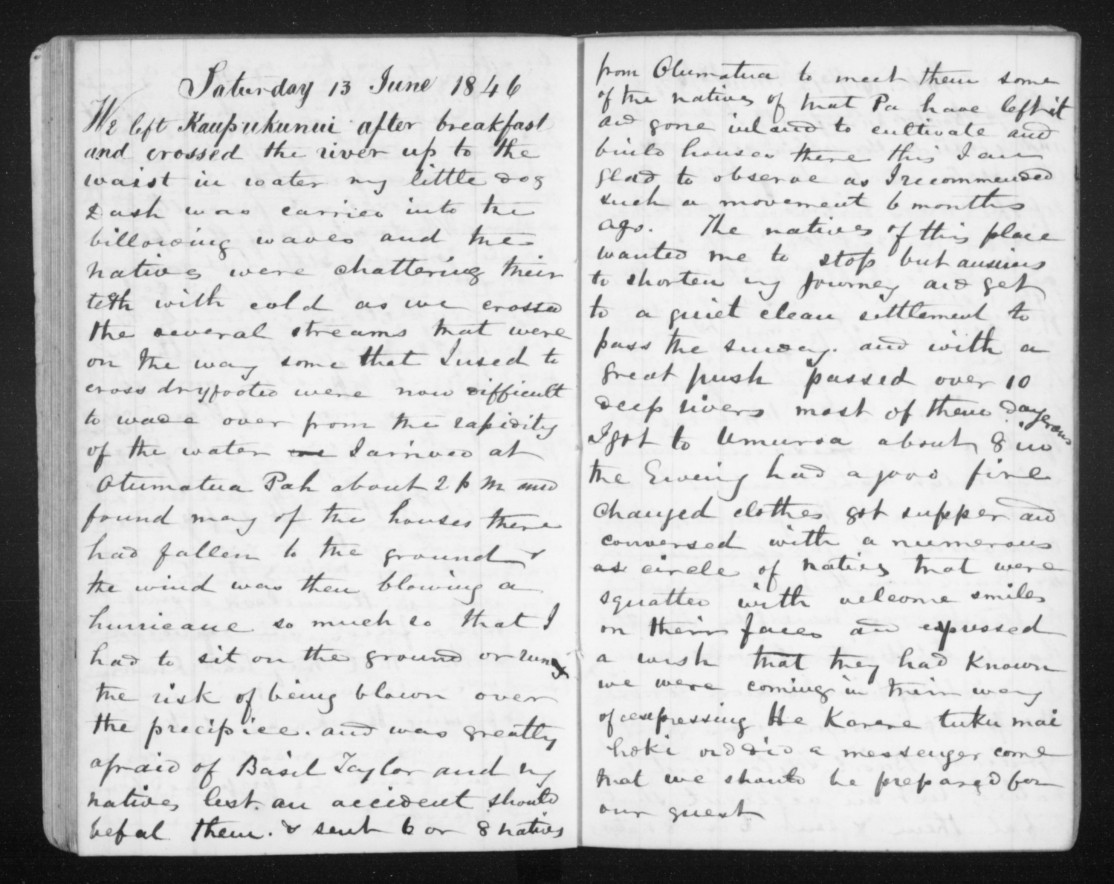 Saturday 13 June 1846
We left Kaupukunui after breakfast
and crossed the river up to the
waist in water my little dog
Dash was carried into the
billowing waves and the
natives were chattering their
teeth with cold as we crossed
the several streams that were
on the way some that I used to
cross dryfooted were now difficult
to wade over from the rapidity
of the water I arrived at
Otumatua Pah about 2 p m and
found many of the houses there
had fallen to the ground &
the wind was then blowing a
hurricane so much so that I
had to sit on the ground or run
the risk of being blown over
the precipice. and was greatly
afraid of Basil Taylor and my
natives lest an accident should
befal them. & sent 6 or 8 natives
from Otumatua to meet them some
of the natives of that Pa have left it
and gone inland to cultivate and
build houses there this I am
glad to observe as I recommended
such a movement 6 months
ago. The natives of this place
wanted me to stop but anxious
to shorten my Journey and get
to a quiet clean settlement to
pass the sunday. and with a
great push passed over 10
deep rivers most of them dangerous
I got to Umuroa about 8 in
the Evening had a good fire
changed clothes got supper and
conversed with a numerous
circle of natives that were
squatted with welcome smiles
on their faces and expressed
a wish that they had known
we were coming in their way
of expressing He Karere tuku mai
hoki did a messenger come
that we should be prepared for
our guest